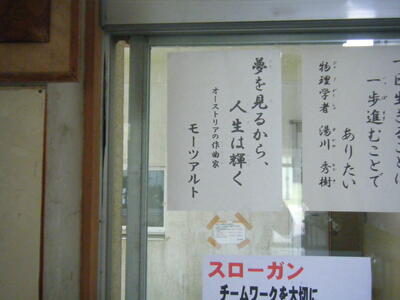 一日生きることは
一歩進むことで
ありたい
物理学者 湯川 秀樹
夢を見るから、
人生は輝く
オーストリアの作曲家
モーツアルト
スローガン
チームワークを大切に